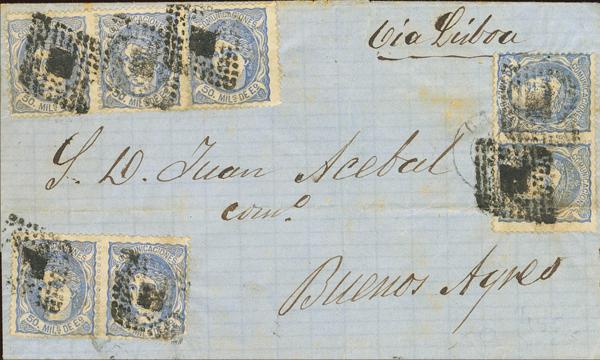 Via Lisboa
COMUNICACIONES
50. MILS DE ES.
50. MILS DE ES.
50. MILS DE ES.
S. D. Juan Acebal
com.º
Buenos Ayres
COMUNICACIONES
50. MILS DE ES.